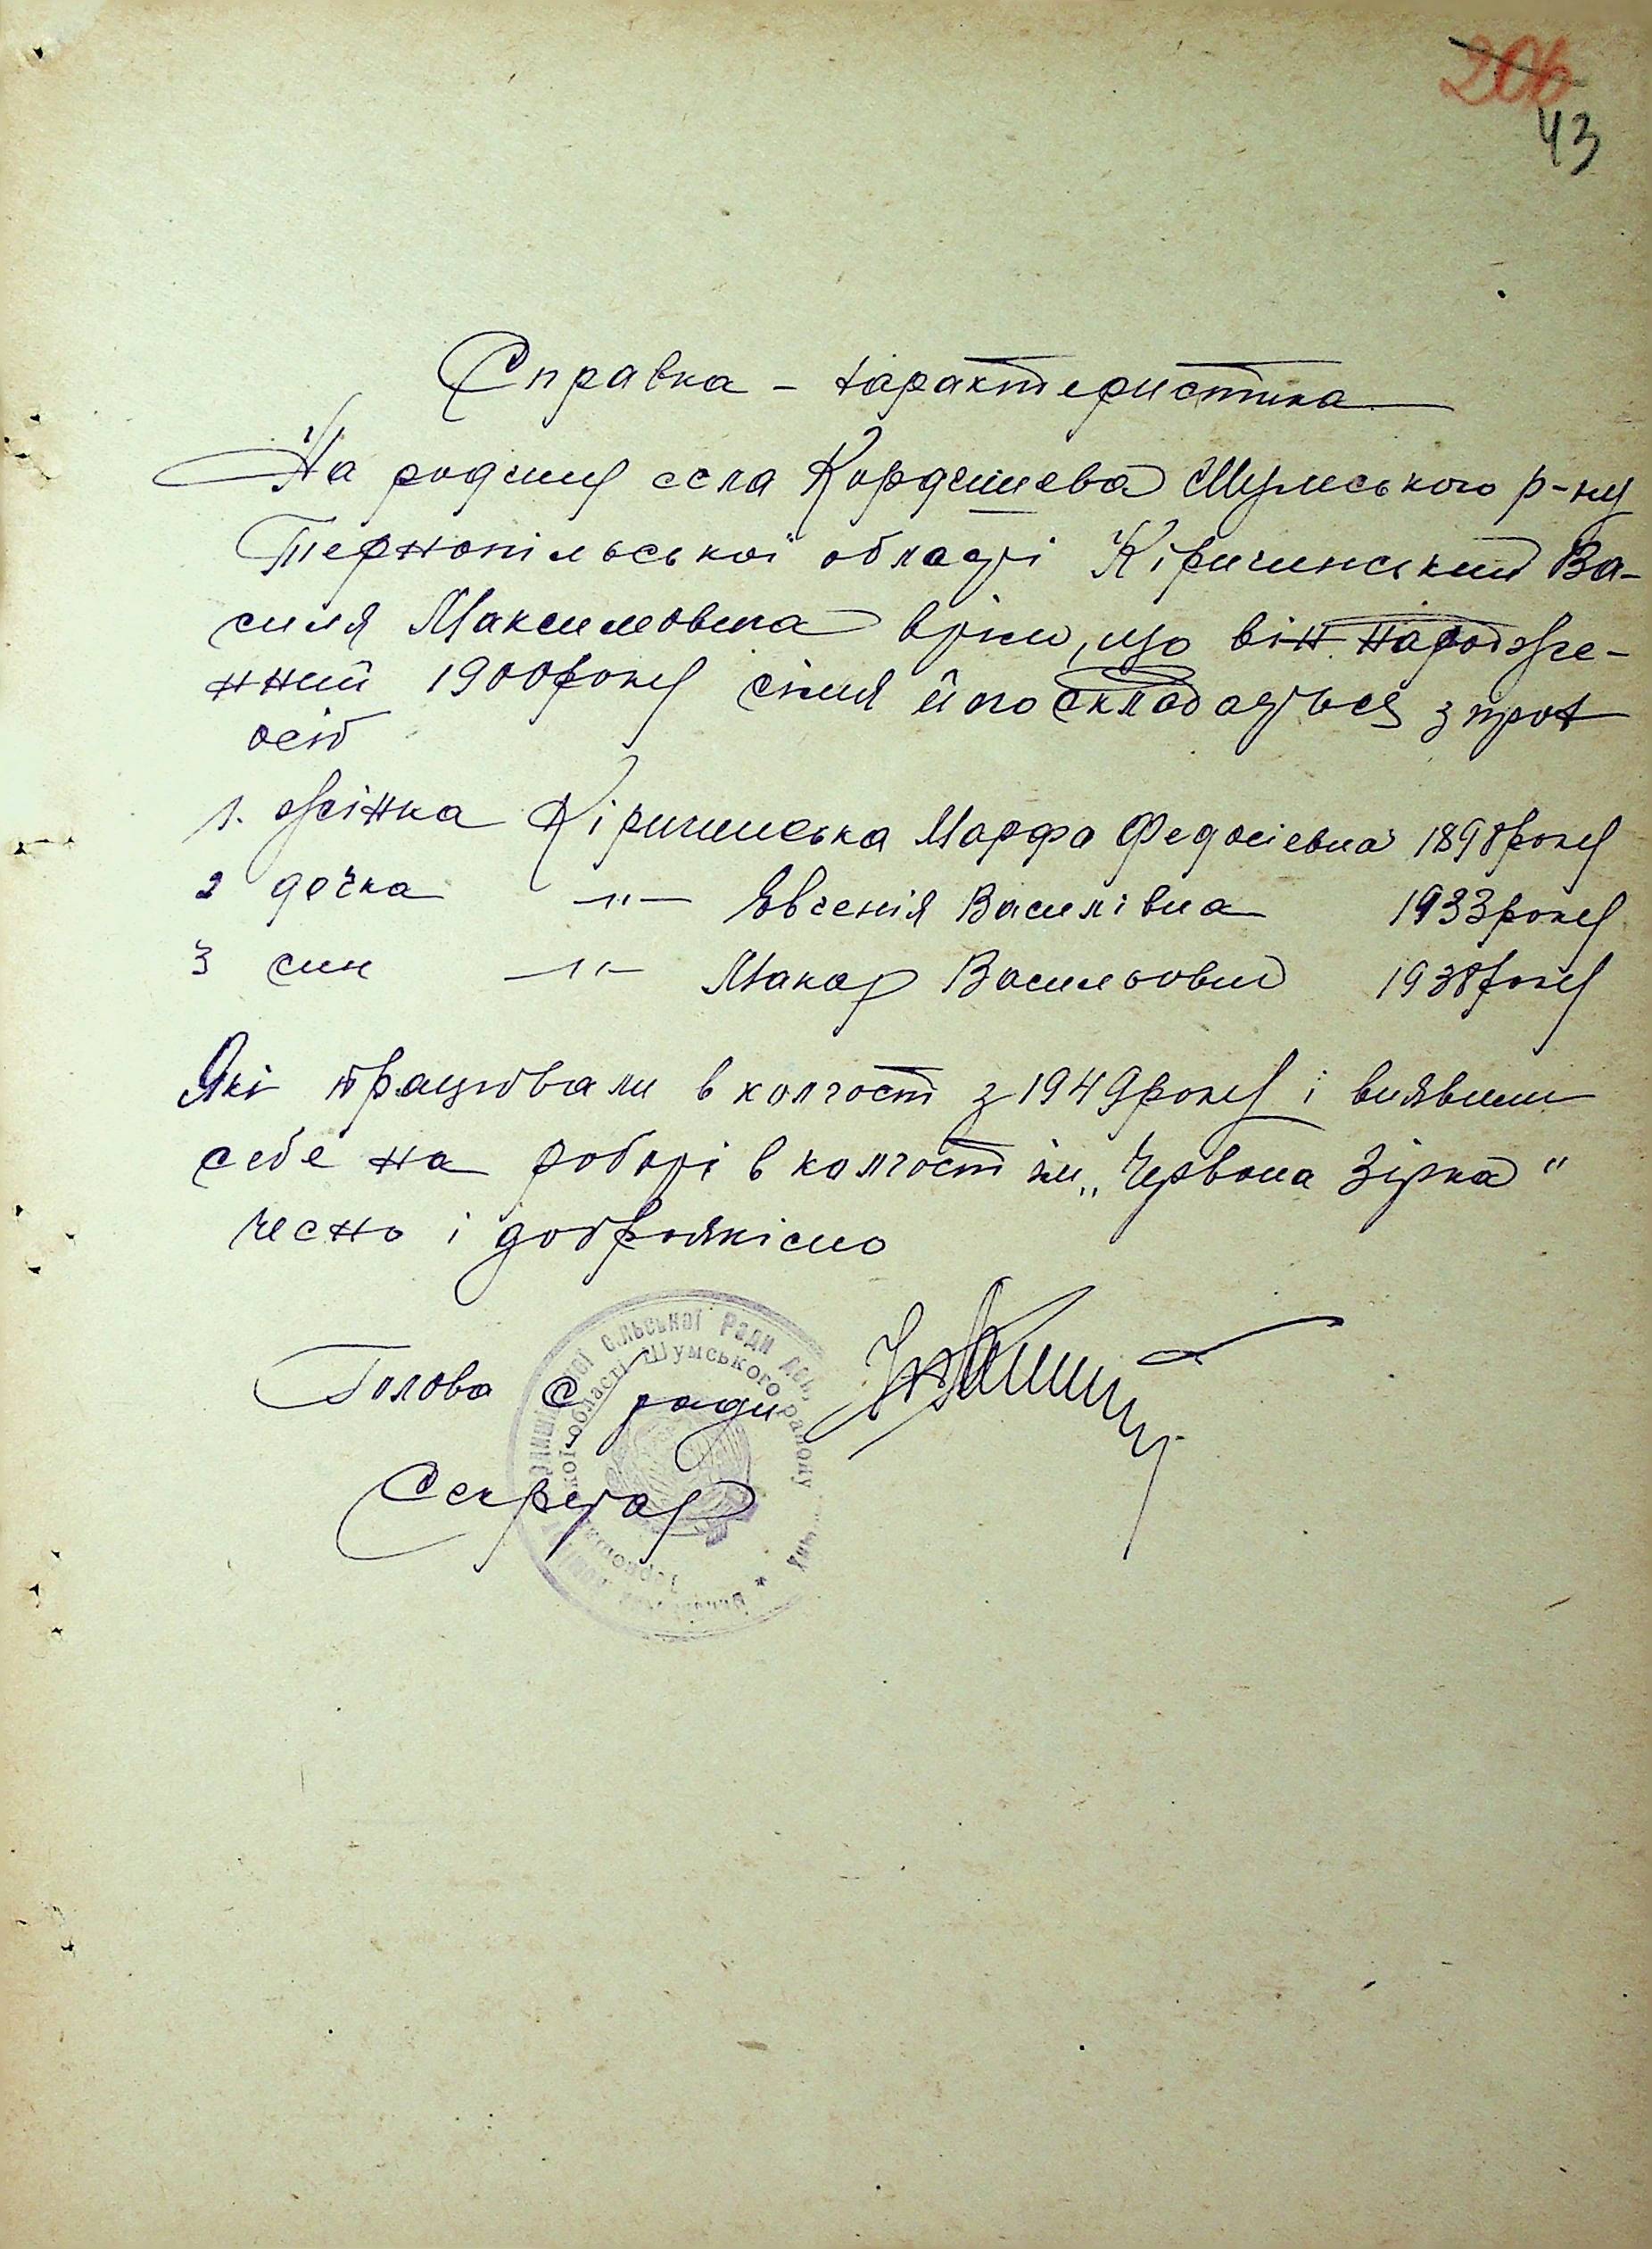 206
43
Справка - характеристика
На родину села Кордишева Шумського р-ну
Тернопільської області Кіричинський Ва-
силя Максимовича втім, що він народже-
нний 1900року сімя його складається з трох
осіб
1. жінка Кіричинська Марфа Федосіевна 1898року
2 дочка —"— Євгенія Василівна 1933року
3 син —"— Макар Васильович 1938року
Які працювали в колгосп з 1949року і виявили
себе на роботі в колгосп ім „Червона Зірка"
чесно і доброякісно
сільської Ради
області Шумського району
Голова С ради
Секретар